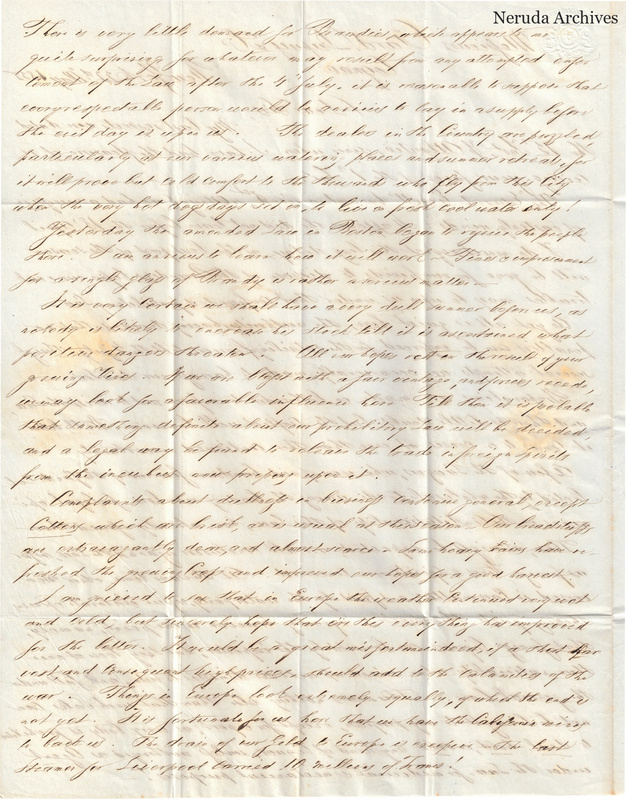 Neruda Archives
There is very little demand for Brandies, which appears to me
quite surprising, for whatever may result from any attempted enfor
cement of the law after the 4th July, it is reasonable to suppose that
every respectable person would be anxious to lay in a supply before
the evil day is upon us. The dealers in the Country are puzzled,
particularly at our various watering places and summer retreats, for
it will prove but cold comfort to the thousand who fly from this City
when the very hot dog days set in, to live on fresh cool water only!
Yesterday the amended law in Boston began to rejoice the people
there. I am anxious to learn how it will work. Texas imprisonment
for a single glass of Brandy is rather a serious matter.
It is very certain we shall have a very dull summer before us, as
nobody is likely to increase his stock till it is ascertained what
position dangers threaten. All our hopes rest on the result of your
growing Vines. If we are blest with a fair vintage, and prices recede,
we may look for a favorable influence here. Till then it is probable
that something definite about our prohibitory law will be decided,
and a legal way be found to release the trade in foreign spirits
from the incubus now preying upon it.
Complaints about dealings in business continue general, except
Cotton, which are brisk, as is usual at this season. Our breadstuffs
are extravagantly dear, and almost scarce. Some heavy rains have re-
freshed the growing Crop and improved our hope for a good harvest.
I am grieved to see that in Europe the weather continued so wet
and cold, but sincerely hope that ere this every thing has improved
for the better. It would be a great misfortune indeed, if a short har
vest and consequent high prices should add to the calamities of the
war. Things in Europe look extremely squally, & what the end is
not yet. It is fortunate for us here that we have the California mines
to back us. The drain of our Gold to Europe is excessive. The last
steamer for Liverpool carried 10 millions of Francs!